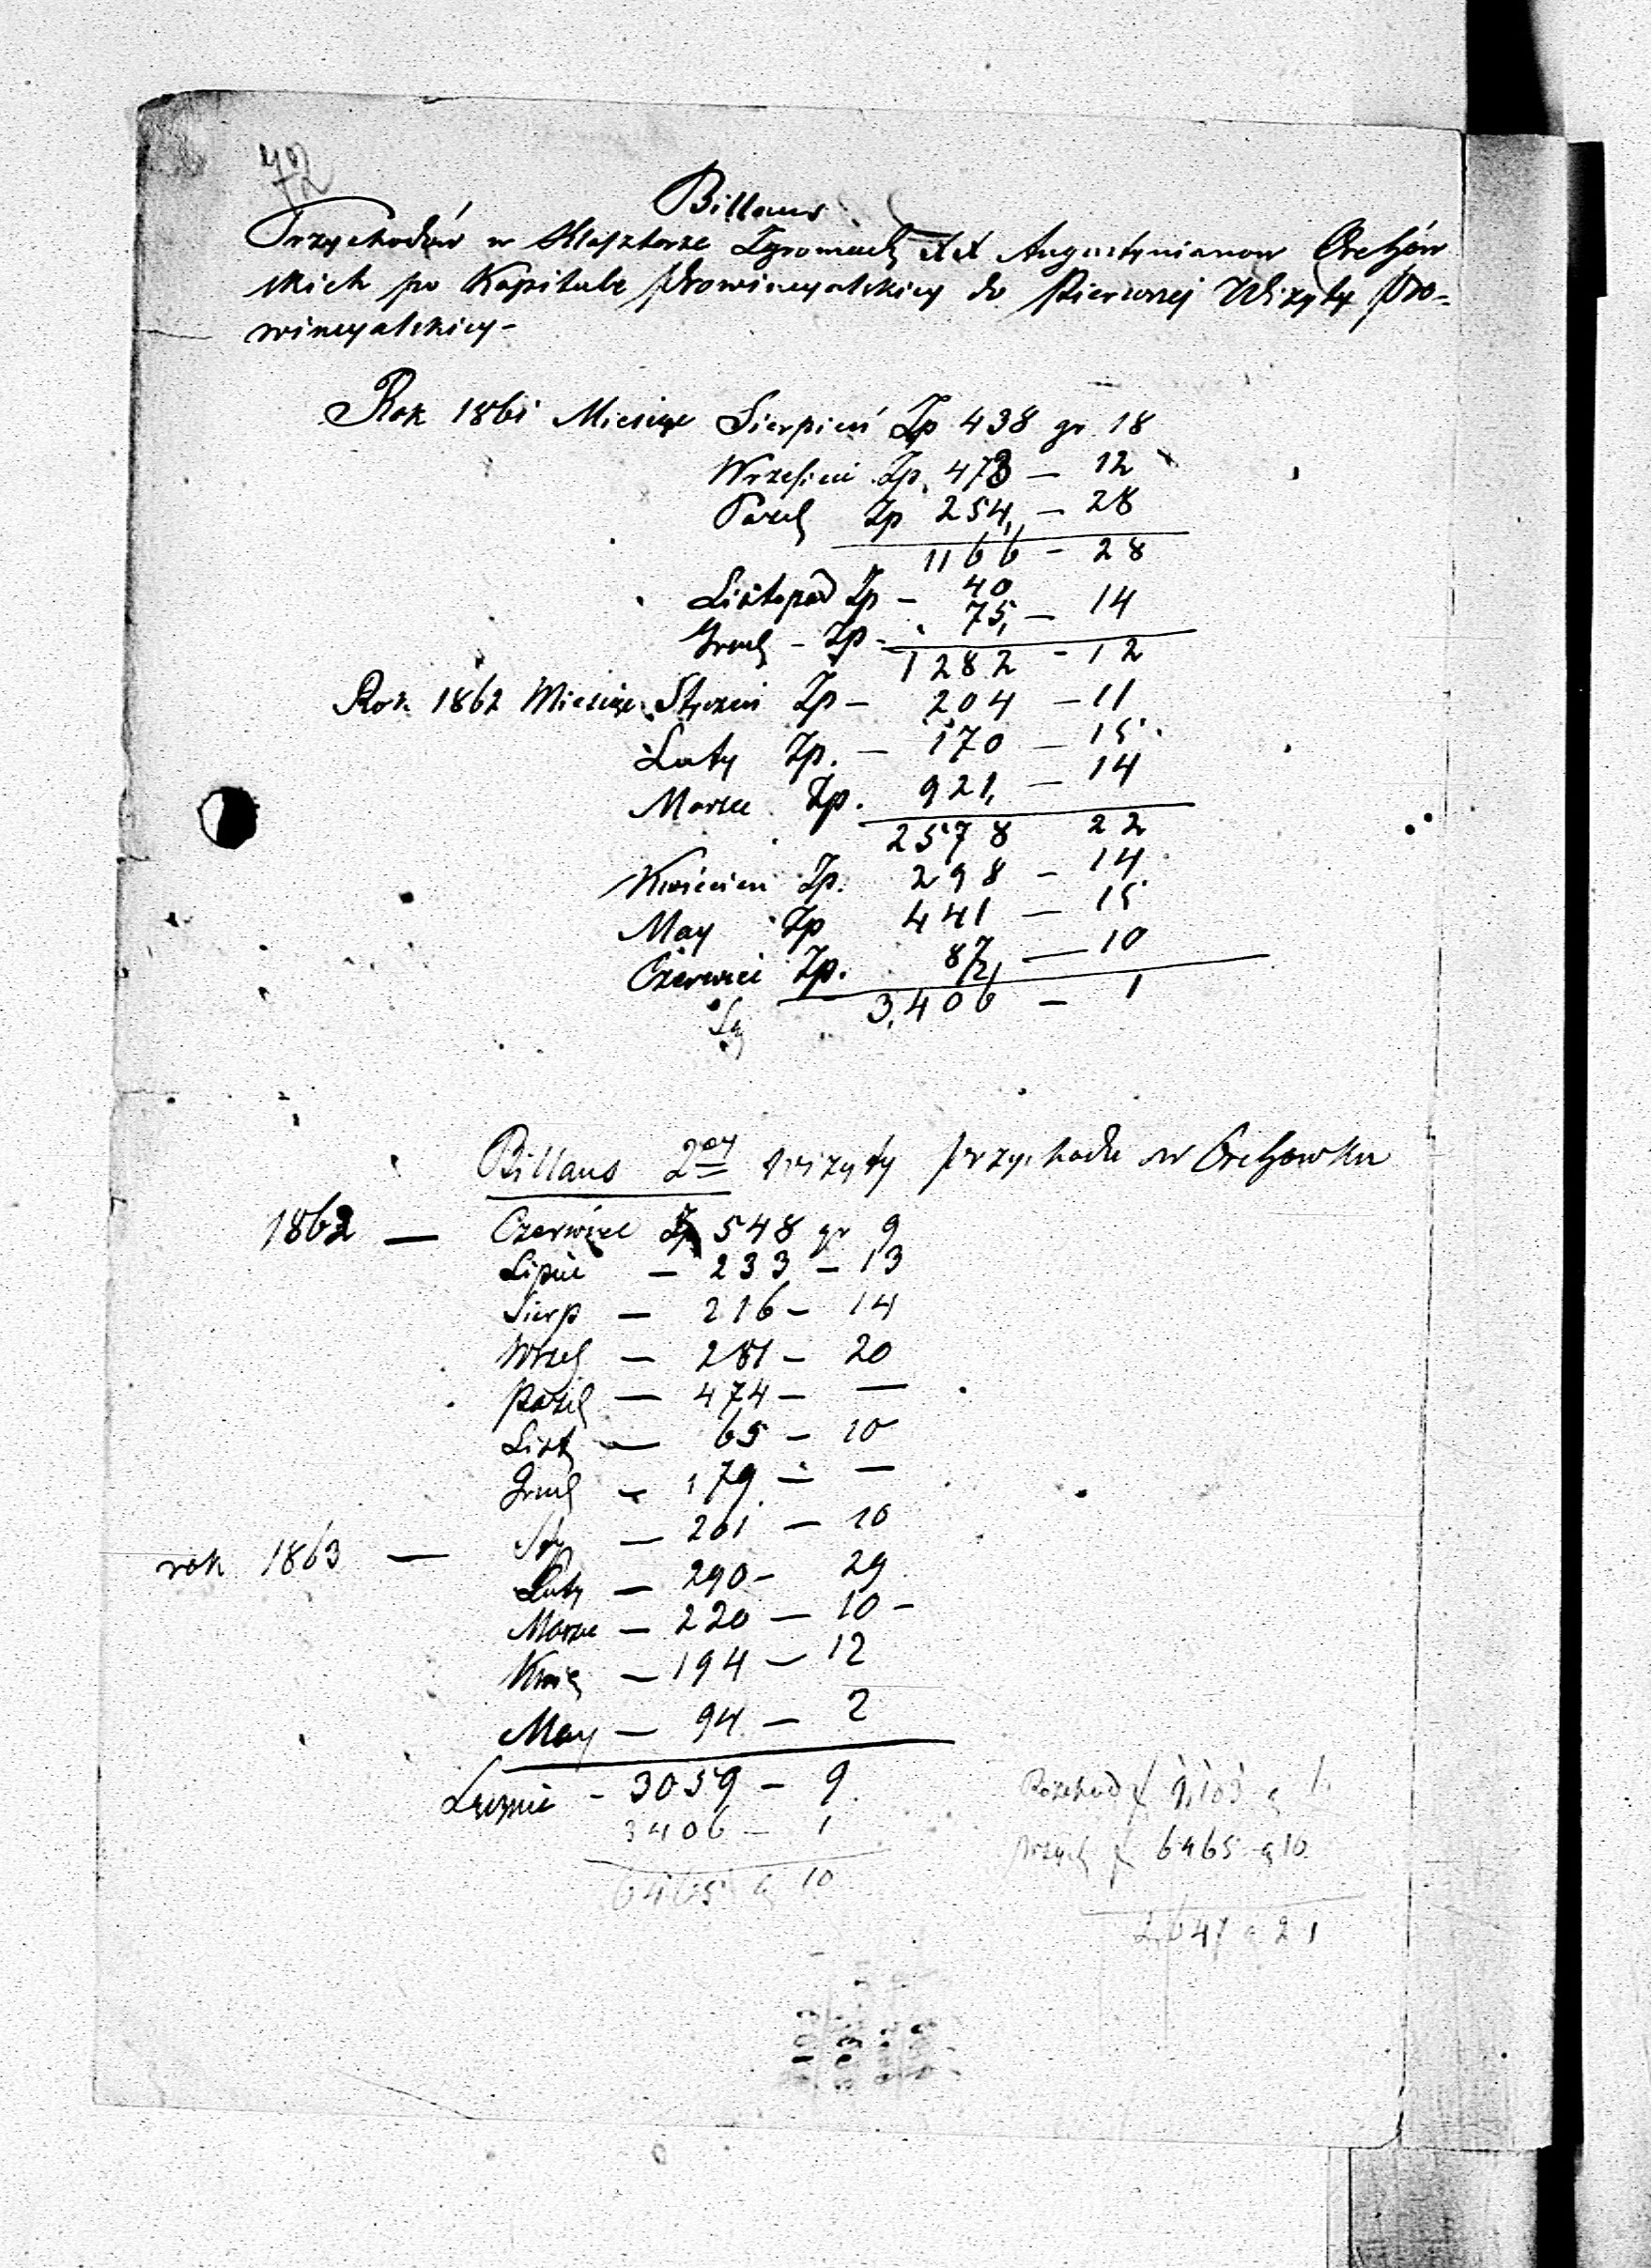 72
Billans
Przychodów w Klasztorze Zgromadz XX Augustynianow Orchów
skich po Kapitule Prowincyalskiey do Pierwszej Wizyty Pro-
wincyalskiey-
Rok 1861 Miesiąc Sierpień Zp 438 gr 18
Wrzesień Zp. 473 — 12
Pazdz Zp 254, — 28
1166 - 28
Listopad Zp - 40
Grudz - Zp - 75, — 14
1282 - 12
Rok 1862 Miesiąc Styczeń Zp — 204 — 11
Luty Zp. — 170 — 15
Marzec Zp. 921, — 14
2578 22
Kwiecień Zp. 298 — 14
May Zp 441 — 15
Czerwiec Zp. 87 — 10
3,406 — 1
Billans 2ey wizyty przychodu w Orchowku
1862 — Czerwiec Zp 548 gr 9
Lipiec — 233 — 13
Sierp — 216 — 14
Wrześ — 281 — 20
Paźdz — 474 — —
List — 65 — 10
Grudz — 179 — —
rok 1863 — Sty — 261 — 10
Luty — 290 — 29
Marzec — 220 — 10 -
Kwie — 194 — 12
May — 94 — 2
Łącznie - 3059 — 9
3406 — 1
6465 g 10
Rozchod f 9,103 g 1
Przych f 6465 g 10
2,647 g 21